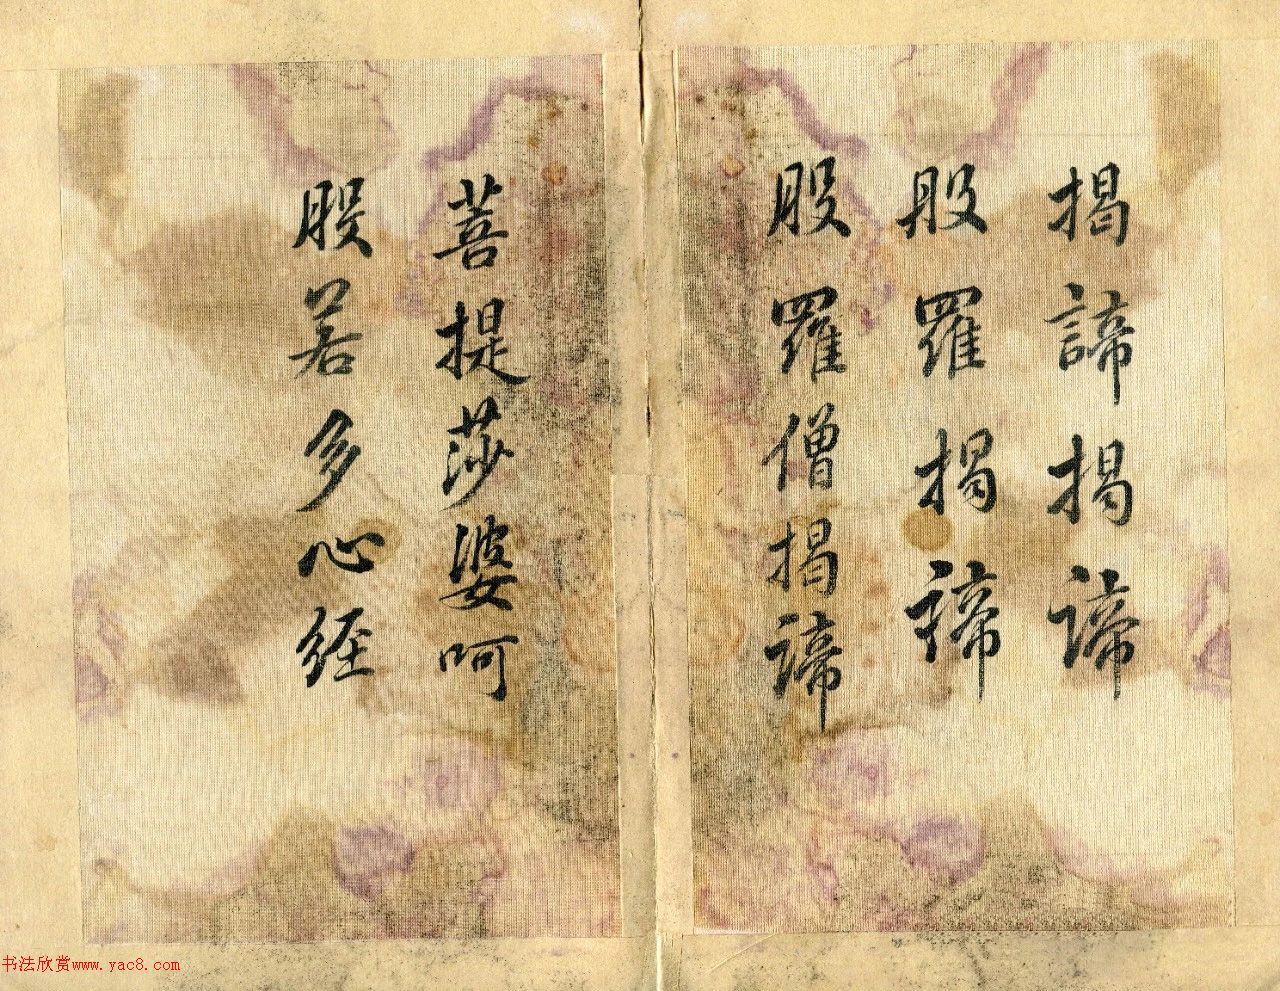 揭諦揭諦
般羅揭諦
般羅僧揭諦
菩提莎婆呵
般若多心経
书法欣赏www.yac8.com